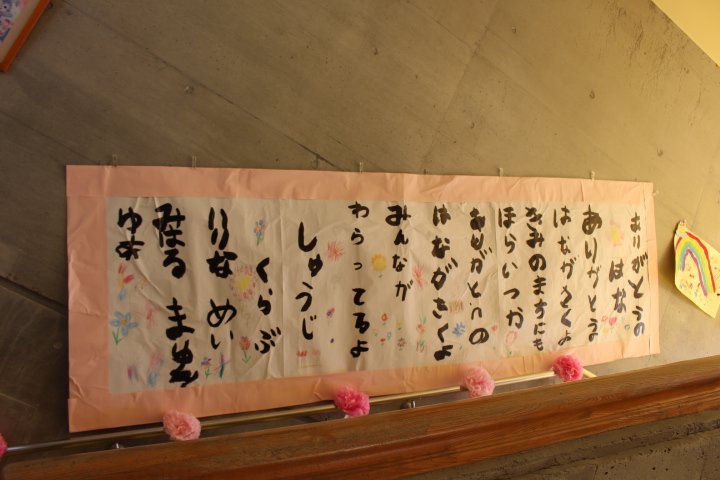 ありがとうの
はな
ありがとう
はながさくよ
きみのまちにも
ほらいつか
ありがとうの
はながさくよ
みんなが
わらってるよ
しゅうじ
くらぶ
りな めい
みはる まゆ
ゆあ